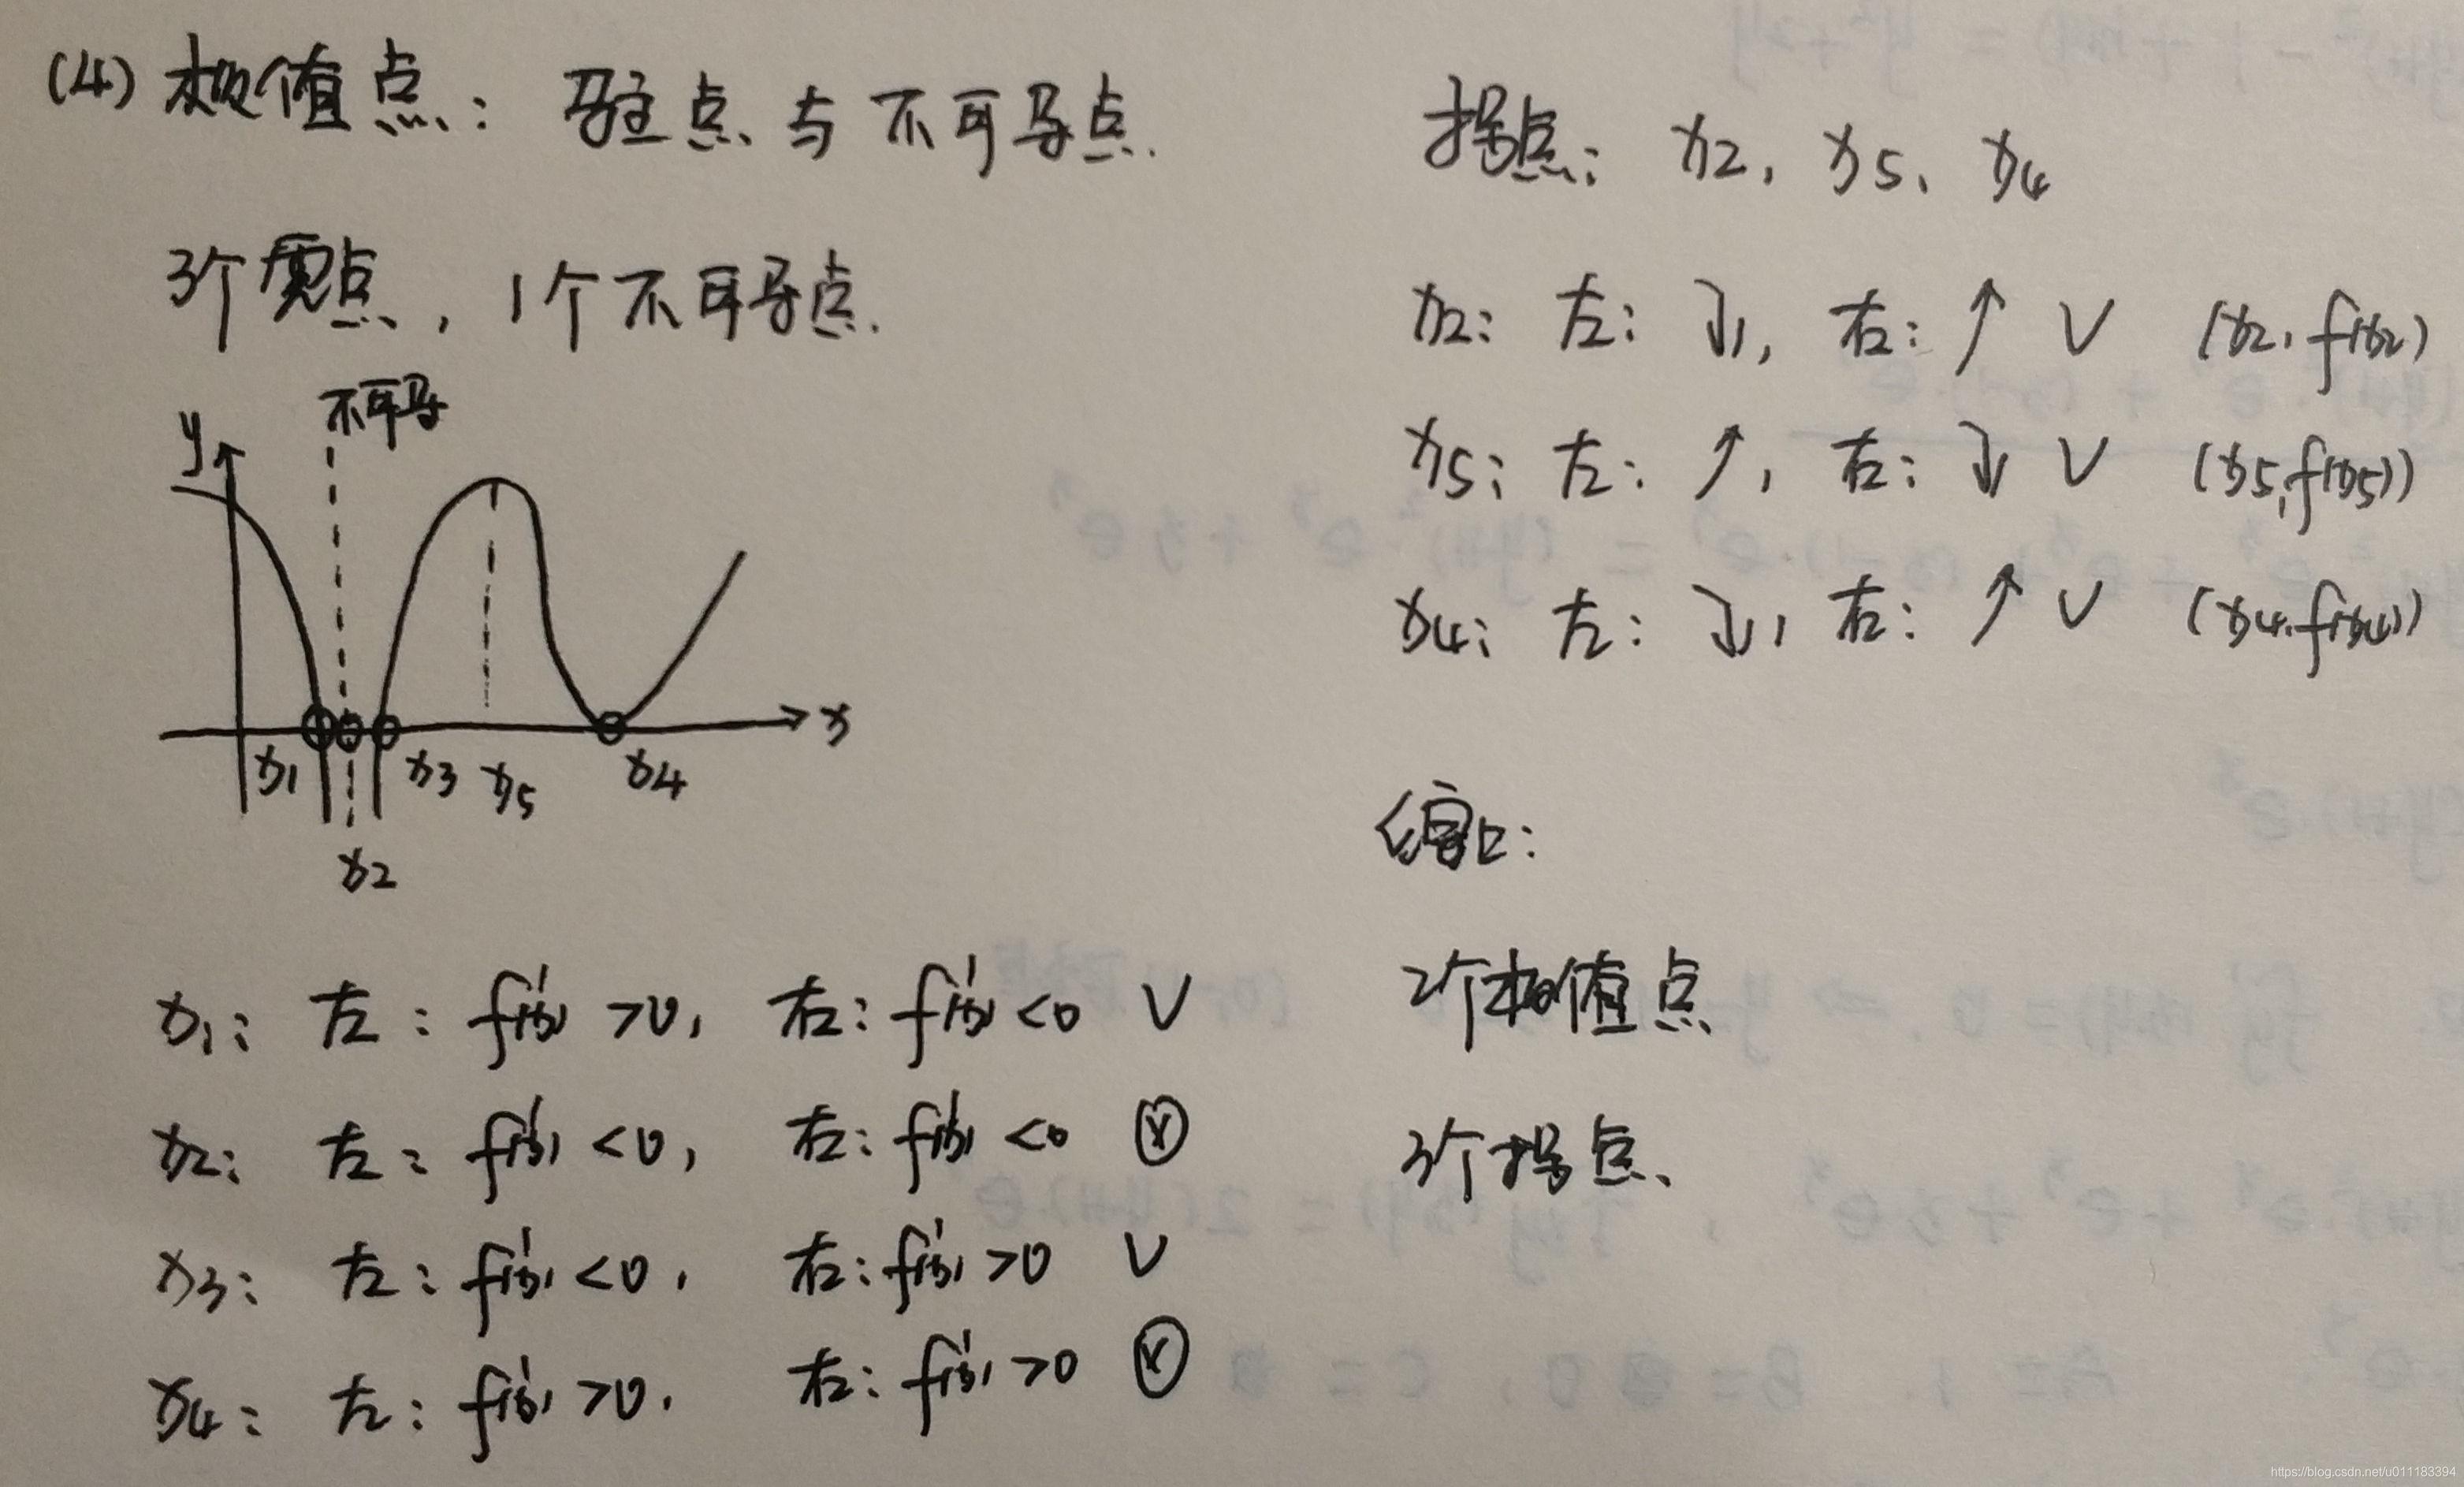 (4) 极值点: 驻点与不可导点.
3个零点, 1个不可导点.
不可导
y
x
x1 x3 x5 x4
x2
x1: 左: f'(x) >0, 右: f'(x) <0 ∨
x2: 左: f'(x) <0, 右: f'(x) <0 ⊗
x3: 左: f'(x) <0, 右: f'(x) >0 ∨
x4: 左: f'(x) >0, 右: f'(x) >0 ⊗
拐点: x2, x5, x4
x2: 左: ↓, 右: ↑ ∨ (x2, f(x2)
x5: 左: ↑, 右: ↓ ∨ (x5, f(x5))
x4: 左: ↓, 右: ↑ ∨ (x4, f(x4))
综上:
2个极值点
3个拐点、
https://blog.csdn.net/u011183394